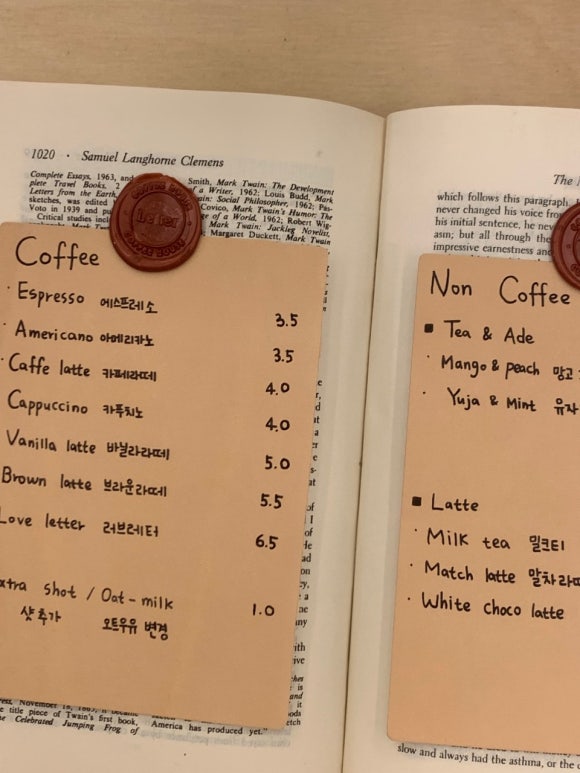 1020 · Samuel Langhorne Clemens
Complete Essays, 1963, and
Smith, Mark Twain: The Development
plete Travel Books, 2
of a Writer, 1962; Louis Budd, Mark
Letters from the Earth,
Twain: Social Philosopher, 1962; Pas-
sketches, was edited
Covico, Mark Twain's Humor: The
Voto in 1939 and pu
ge of a World, 1962; Robert Wig-
Critical studies incl
Mark Twain: Jackleg Novelist,
Margaret Duckett, Mark Twain
COFFEE BOOK
Le ter
COFFEE BOOK
Coffee
· Espresso 에스프레소 3.5
Americano 아메리카노 3.5
· Caffe latte 카페라떼 4.0
Cappuccino 카푸치노 4.0
Vanilla latte 바닐라라떼 5.0
Brown latte 브라운라떼 5.5
Love letter 러브레터 6.5
xtra shot / Oat-milk 1.0
샷추가 오트우유 변경
November 18, 1865, it became
e title piece of Twain's first book,
e Celebrated Jumping Frog of
America has produced yet."
The
which follows this paragraph.
never changed his voice from
his initial sentence, he never
asm; but all through the
impressive earnestness and
Non Coffee
■ Tea & Ade
· Mango & peach 망고
· Yuja & Mint 유자
■ Latte
· Milk tea 밀크티
· Match latte 말차라떼
· White choco latte
slow and always had the asthma, or the